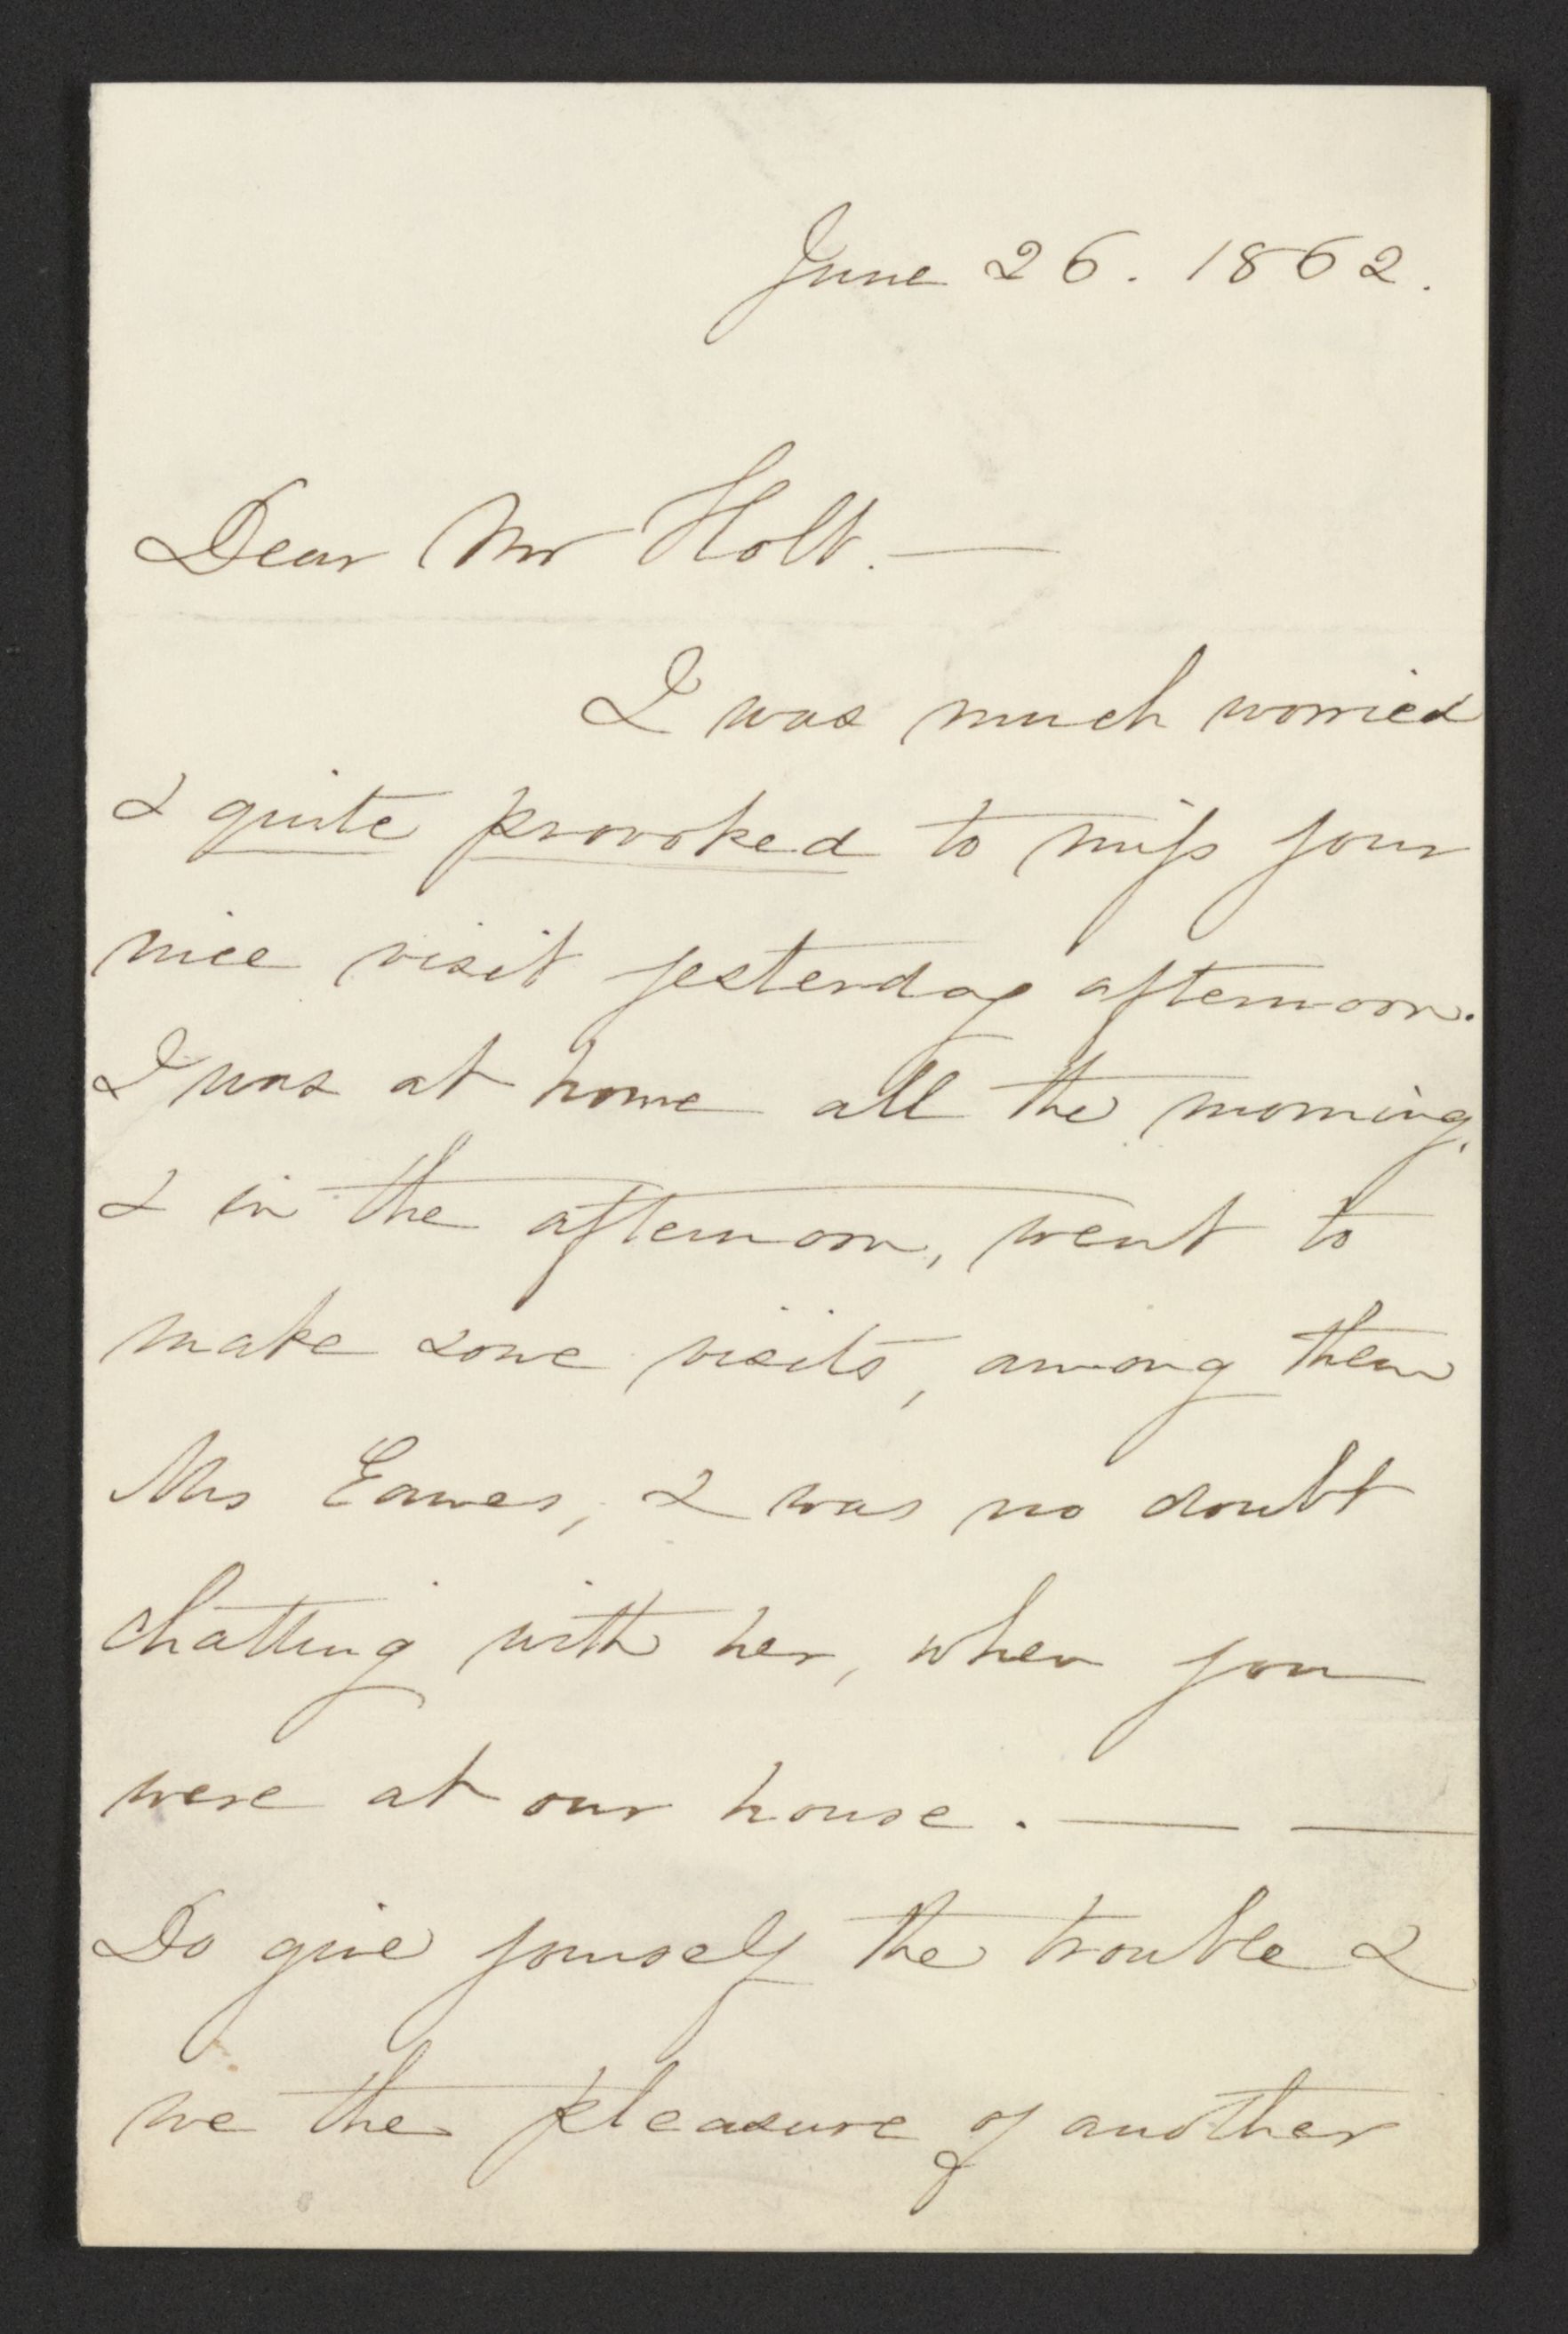 June 26. 1862.
Dear Mr Holt. —
I was much worried
& quite provoked to miss your
nice visit yesterday afternoon.
I was at home all the morning,
& in the afternoon, went to
make some visits, among them
Mrs Eames, & was no doubt
chatting with her, when you
were at our house. — —
Do give yourself the trouble &
me the pleasure of another